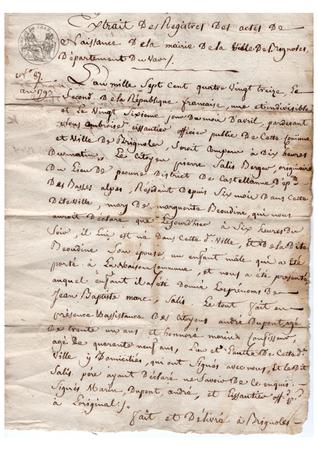 Extrait Des Registres Des actes De
Naissance De la mairie De la Ville de Brignoles,
Département du Var.
L'an mille Sept Cent quatre vingt treize Le
Second De la République française, une et indivisible
et Le Vingt Sixieme jour Du mois D'avril pardevant
nous ambroise Essautier officier public De Cette Commune
et Ville De Brignoles, Soint Comparu à Dix heures
Du matin, Le Citoyen pierre Salis Berger, originaire
Du Lieu De District De Castellanne Dép.t
Des Basses alpes, Résident Depuis Six mois Dans Cette
Dite Ville, mary De marguerite Beoudine, qui nous
auroit Declaré que Lejourdhier à Six heures Du
Soir, il Luiy est né Dans Cette d. Ville, et De La Dite
Beoudine Son épouse, un Enfant male qui a été
porté à La Maison Commune, et nous a été présenté
auquel enfant il a été Donné Les prénoms De
Jean Baptiste marc Salis. Le tout fait en
présence Dassistance Des Citoyens andré Dupont, agé
De trente un ans, et honnoré marin
agé De quarente neuf ans, L'un et L'autre De Cette d.
Ville y Domiciliés, qui ont Signés avec nous, et Le Dit
Salis père ayant Déclaré ne Savoir De ce enquis.
Signés Marin, Dupont, andré, et Essautier off. p.
à L'original.
fait et Délivré à Brignoles